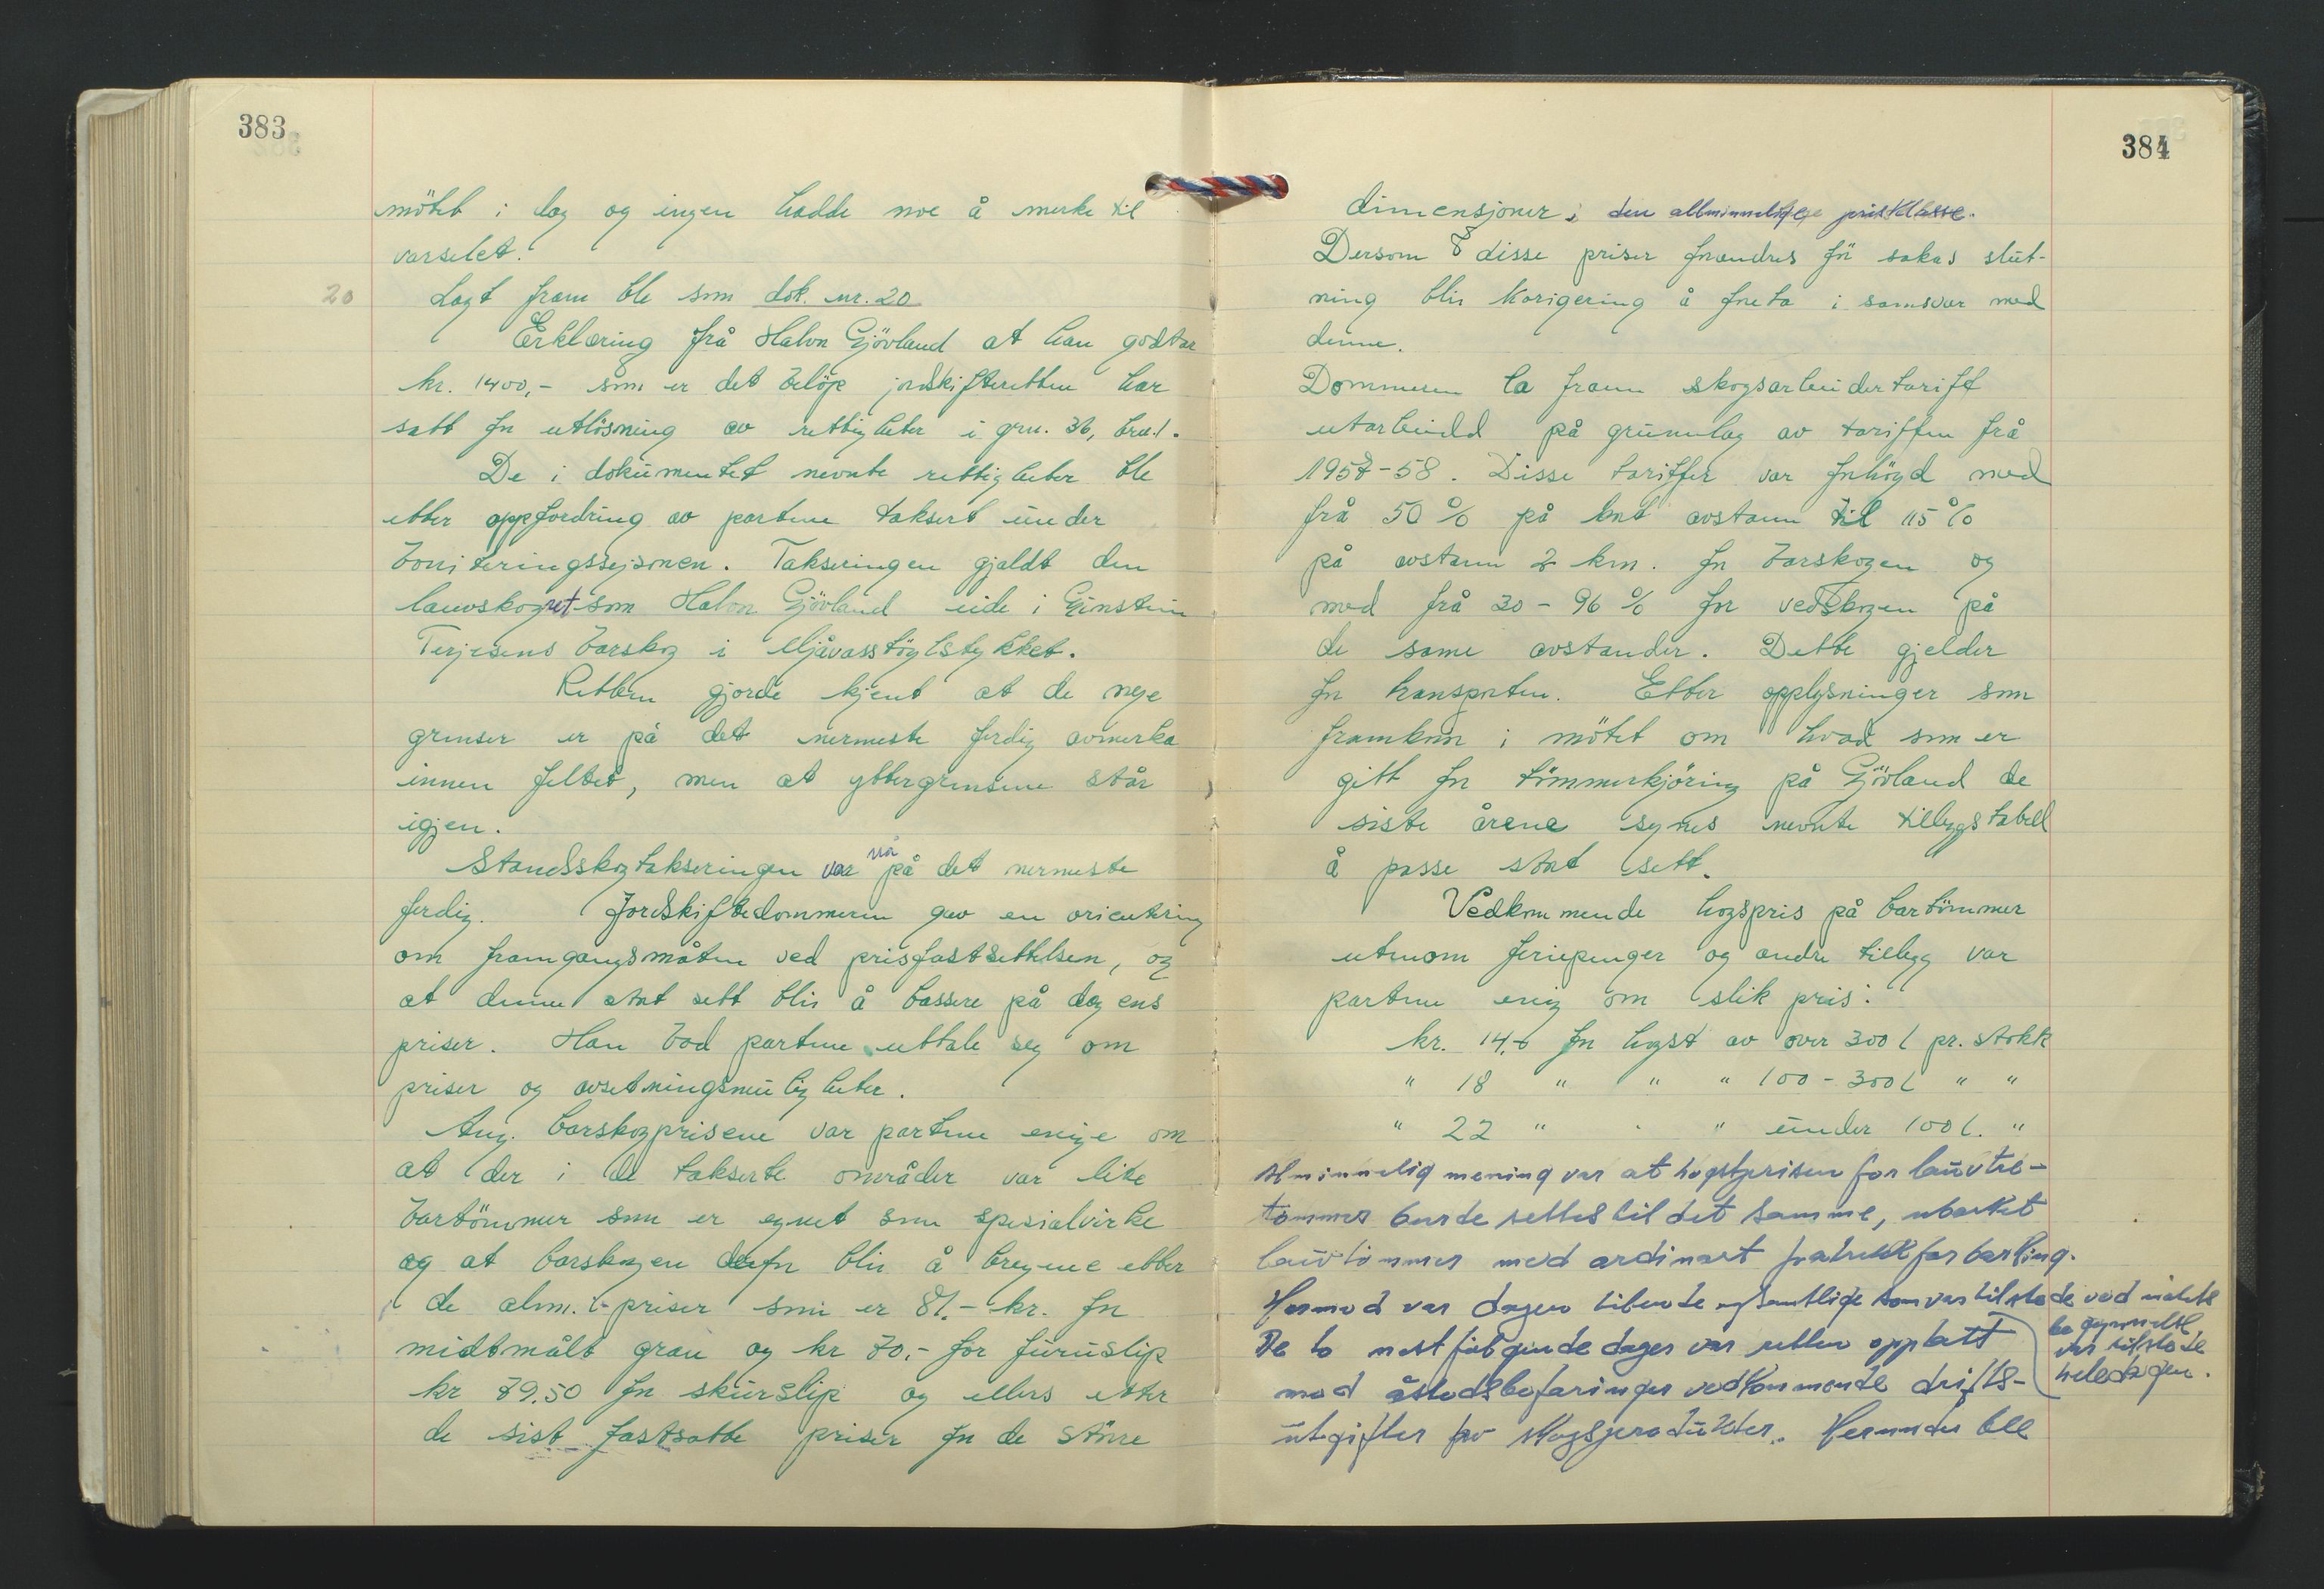 383
møtet i dag og ingen hadde noe å merke til
varselet.
20
Lagt fram ble som dok. nr. 20
Erklæring frå Halvor Gjövland at han godtar
kr. 1400,- som er det beløp jordskifteretten har
satt for utlösning av rettigheter i grn. 36, brn. 1.
De i dokumentet nevnte rettigheter ble
etter oppfordring av partene taksert under
boniteringssejsonen. Takseringen gjaldt den
lauvskogret som Halvor Gjövland eide i
Terjesens barskog i stykket.
Retten gjorde kjent at de nye
grenser er på det nermeste ferdig avmerka
innen feltet, men at yttergrensene står
igjen.
Standsskogtakseringen var nå på det nermeste
ferdig. Jordskiftedommeren gav en orientering
om framgangsmåten ved prisfastsettelsen, og
at denne stort sett blir å bassere på dagens
priser. Han bad partene uttale seg om
priser og avsetningsmuligheter.
Ang. barskogprisene var partene enige om
at der i de takserte områder var lite
bartömmer som er egnet som spesialvirke
og at barskogen derfor blir å beregne etter
de alm. priser som er 81.- kr. for
midtmålt gran og kr 70.- for furuslip
kr 79.50 for skurslip og ellers etter
de sist fastsatte priser for de större
384
dimensjoner i den allminnelige prisklasse.
Dersom disse priser forandres för sakas slut-
ning blir korigering å foreta i samsvar med
denne.
Dommeren la fram skogsarbeidertariff
utarbeidd på grunnlag av tariffen frå
1957-58. Disse tariffer var forhögd med
frå 50 % på kort avstann til 115 %
på avstann 2 km. for barskogen og
med frå 30 - 96 % for vedskogen på
de same avstander. Dette gjelder
for transporten. Etter opplysninger som
framkom i mötet om hvad som er
gitt for tömmerkjöring på Gjövland de
siste årene synes nevnte tilleggstabell
å passe stort sett.
Vedkommende hogspris på bartömmer
utenom feriepenger og andre tillegg var
partene enig om slik pris:
kr. 14,- for hogst av over 300 l pr. stokk
" 18 " " " 100 - 300 l " "
" 22 " " " under 100 l. "
Alminnelig mening var at hogstprisen for lauvtre-
tömmer burde settes til det samme, ubarket
lauvtömmer med ordinært fratrekk for barking.
Hermed var dagen tilende og samtlige som var tilstede ved mötets
begynnelse
var tilstede
hele dagen.
De to nestfölgende dager var retten opptatt
med åstedsbefaringer vedkommende drifts-
utgifter for skogsprodukter. Herunder ble